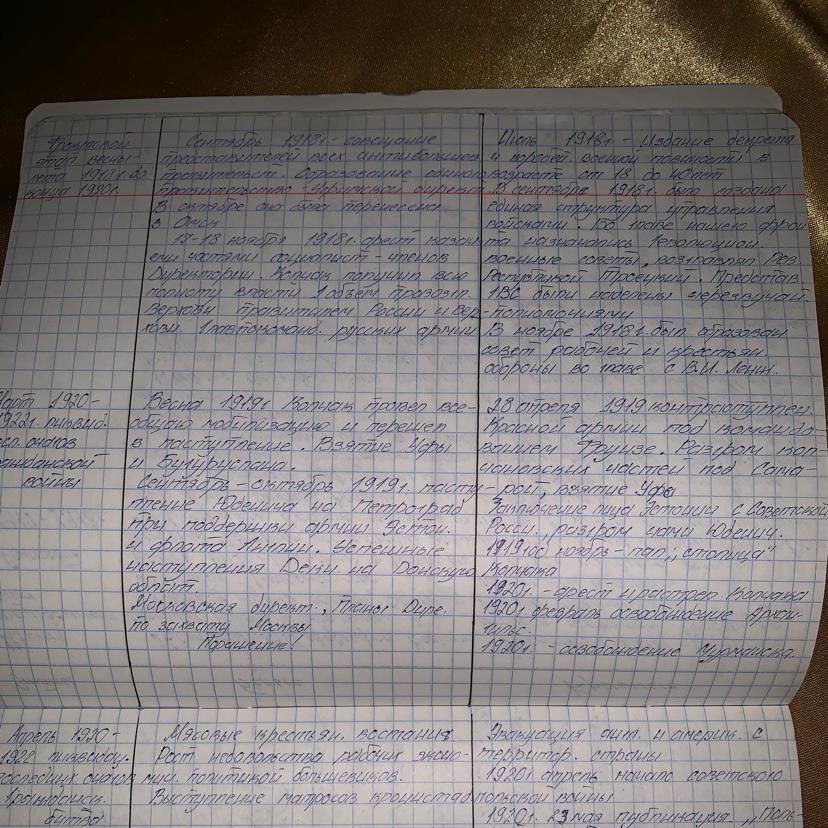 Фронтовой
этап весны-
лета 1918г. до
конца 1920г.
Сентябрь 1918г. - совещание
представителей всех антибольшев.
правительств. Образование единого
правительства - Уфимской директ.
В октябре она была перенесена
в Омск
17-18 ноября 1918г. арест казачь-
ими частями социалист - членов
Директории. Колчак получил всю
полноту власти и объем провозгл.
верховн. правителем России и вер-
ховн. главнокоманд. русских армии
Июль 1918г - Издание декрета
о всеобщ. военной повинности в
возрасте от 18 до 40 лет
В сентябре 1918г. была создана
единая структура управления
войсками. Во главе нашего фрон-
та назначались Революцион.
военные советы, возглавлял Рев.
Республикой Троцкий. Представ.
РВС были наделены чрезвучай.
полномочиями
В ноябре 1918г. был образован
совет рабочей и крестьян.
обороны во главе с В.И. Ленин.
Март 1920-
1922г. ликвид.
посл. очагов
гражданской
войны
Весна 1919г Колчак провел все-
общую мобилизацию и перешел
в наступление. Взятие Уфы
и Бугуруслана.
Сентябрь - октябрь 1919г. насту-
пление Юденича на Петроград
при поддержки армии Эстон.
и флота Англии. Успешные
наступления Дени. на Донскую
област.
Московская директ., Планы Дире.
по захвату Москвы
Поражение!
28 апреля 1919 контрнаступлен.
Красной армии под командо-
ванием Фрунзе. Разгром кол-
чаковских частей под Сама-
рой, взятие Уфы
Заключение мира Эстонии с Советской
Росси., разгром Юденич.
1919(о) ноябрь - пал „столица"
Колчака
1920г. - арест и расстрел Колчака
1920г. февраль освобождение Архан-
гильс.
1920г. - освобождение Мурманска.
Апрель 1920-
1922 ликвидац.
последних очагов
Гражданск.
битва
Массовые крестьян. востания
Рост недовольства рабочих эконо-
мич. политикой большевиков.
Выступление матросов кронштад
Эвакуация анг. и америк. с
территор. страны
1920г. апрель начало советского
польской войны
1920г. 23 мая публикация „Поль-